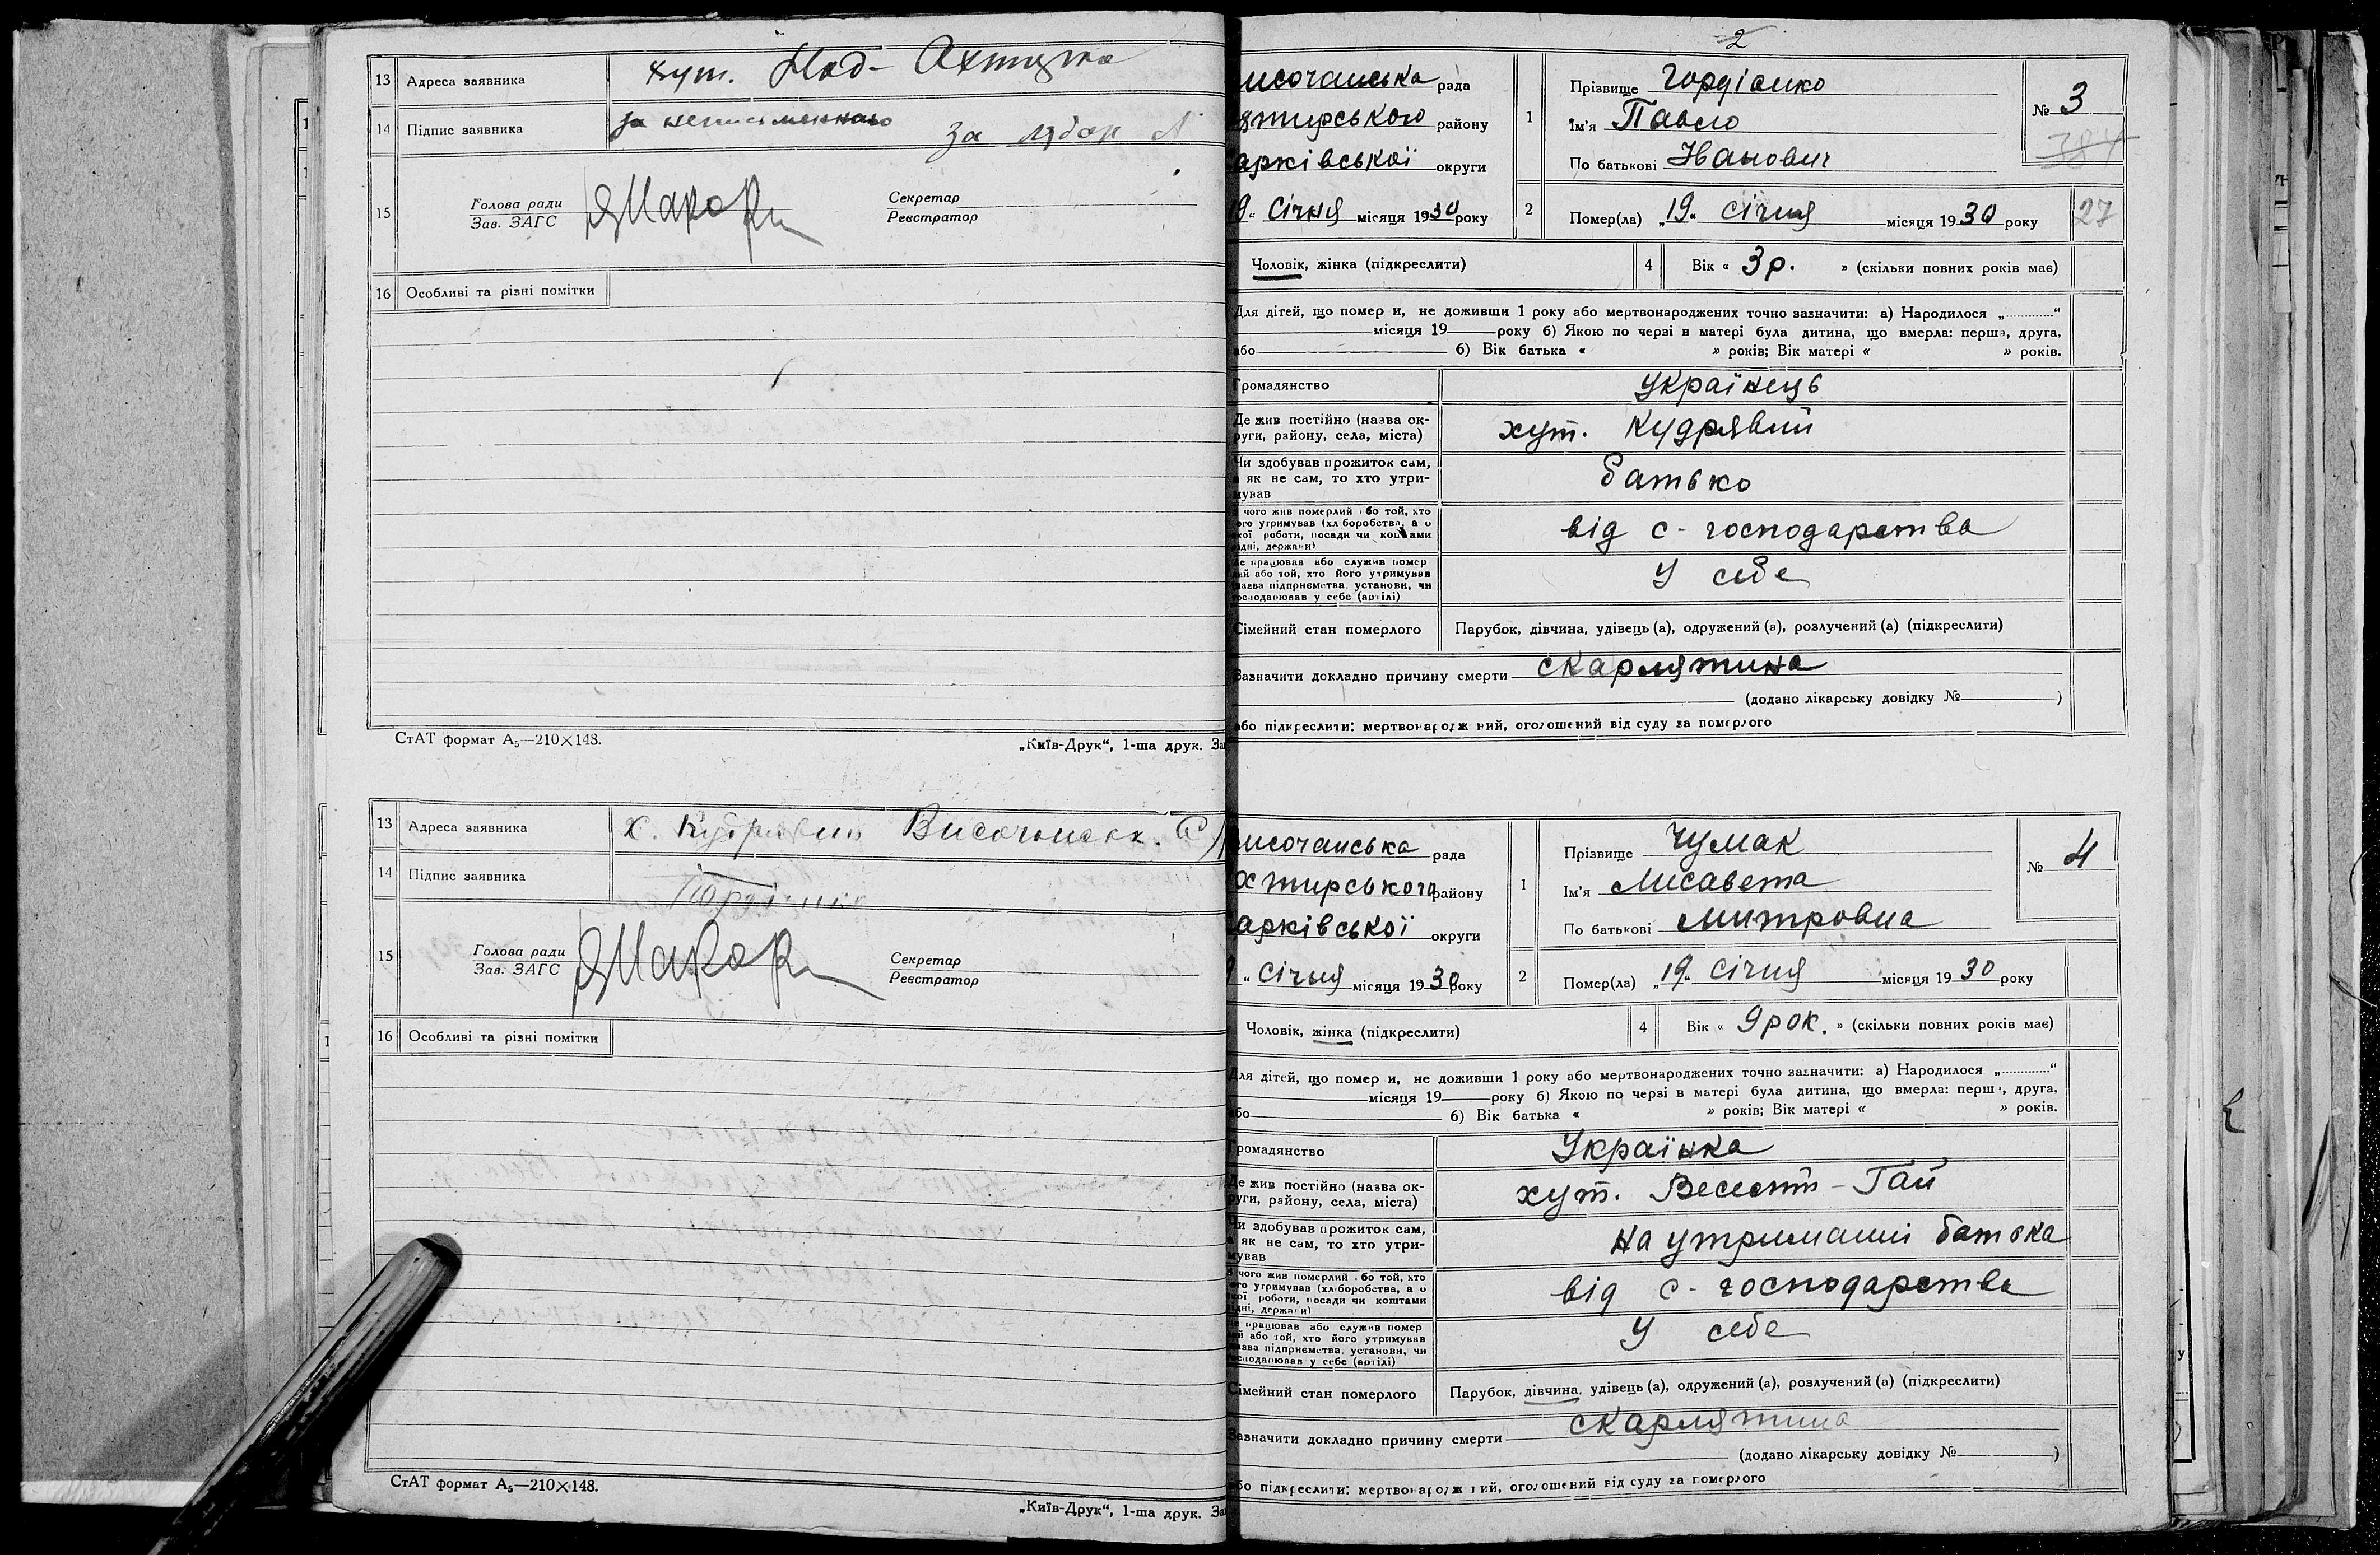 13 Адреса заявника хут. Над-Ахтирка
14 Підпис заявника за неписьменного за
15 Голова ради Зав. ЗАГС Секретар Реєстратор
16 Особливі та різні помітки
СтАТ формат А₅—210×148.
„Київ-Друк“, 1-ша друк. За
13 Адреса заявника х. Кудрявий Височанськ. С/
14 Підпис заявника
15 Голова ради Зав. ЗАГС Секретар Реєстратор
16 Особливі та різні помітки
СтАТ формат А₅—210×148.
„Київ-Друк“, 1-ша друк. За
2
исочанська рада
хтирського району
арківської округи
19 „ Січня місяця 1930 року
1 Прізвище Гордієнко
Ім'я Павло
По батькові Іванович
№ 3
384
2 Помер(ла) „19“ Січня місяця 1930 року
27
Чоловік, жінка (підкреслити) 4 Вік « 3 р. » (скільки повних років має)
Для дітей, що помер и, не доживши 1 року або мертвонароджених точно зазначити: а) Народилося „............“
місяця 19 року б) Якою по черзі в матері була дитина, що вмерла: перша, друга,
або б) Вік батька « » років; Вік матері « » років.
Громадянство Українець
Де жив постійно (назва ок-
руги, району, села, міста) хут. Кудрявий
Чи здобував прожиток сам,
а як не сам, то хто утри-
мував батько
З чого жив померлий або той, хто
його утримував (хліборобства, а о
якої роботи, посади чи коштами
рідні, держави) від с-господарства
Де працював або служив помер
лий або той, хто його утримував
назва підприємства, установи, чи
господарював у себе (артілі) У себе
Сімейний стан померлого Парубок, дівчина, удівець (а), одружений (а), розлучений (а) (підкреслити)
Зазначити докладно причину смерти скарлятина
(додано лікарську довідку № )
або підкреслити: мертвонародж ний, оголошений від суду за померлого
исочанська рада
хтирського району
арківської округи
„ Січня місяця 1930 року
1 Прізвище Чумак
Ім'я Лисавета
По батькові Митровна
№ 4
2 Помер(ла) „19“ Січня місяця 1930 року
Чоловік, жінка (підкреслити) 4 Вік « 9 рок. » (скільки повних років має)
Для дітей, що помер и, не доживши 1 року або мертвонароджених точно зазначити: а) Народилося „............“
місяця 19 року б) Якою по черзі в матері була дитина, що вмерла: перша, друга,
або б) Вік батька « » років; Вік матері « » років.
Громадянство Українка
Де жив постійно (назва ок-
руги, району, села, міста) хут. Гай
Чи здобував прожиток сам,
а як не сам, то хто утри-
мував на утриманні батька
З чого жив померлий або той, хто
його утримував (хліборобства, а о
якої роботи, посади чи коштами
рідні, держави) від с-господарства
Де працював або служив помер
лий або той, хто його утримував
назва підприємства, установи, чи
господарював у себе (артілі) У себе
Сімейний стан померлого Парубок, дівчина, удівець (а), одружений (а), розлучений (а) (підкреслити)
Зазначити докладно причину смерти скарлятина
(додано лікарську довідку № )
або підкреслити: мертвонародж ний, оголошений від суду за померлого